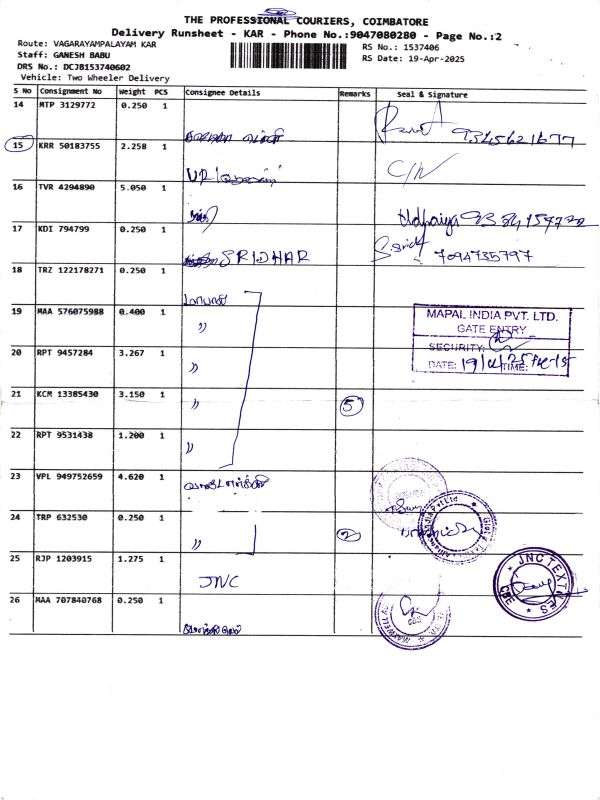 THE PROFESSIONAL COURIERS, COIMBATORE
Delivery Runsheet - KAR - Phone No.:9047080280 - Page No.:2
Route: VAGARAYAMPALAYAM KAR
Staff: GANESH BABU
DRS No.: DCJB153740602
Vehicle: Two Wheeler Delivery
RS No.: 1537406
RS Date: 19-Apr-2025
S No Consignment No Weight PCS Consignee Details Remarks Seal & Signature
14 MTP 3129772 0.250 1
9345621677
15 KRR 50183755 2.258 1
C/N
16 TVR 4294890 5.050 1
17 KDI 794799 0.250 1
SRIDHAR
7094735797
18 TRZ 122178271 0.250 1
19 MAA 576075988 0.400 1
"
MAPAL INDIA PVT. LTD.
GATE ENTRY
SECURITY:
DATE: 19/4/25 TIME:
20 RPT 9457284 3.267 1
"
21 KCM 13385430 3.150 1
" 5
22 RPT 9531438 1.200 1
"
23 VPL 949752659 4.620 1
24 TRP 632530 0.250 1
" 2
25 RJP 1203915 1.275 1
JNC
JNC TEXTILES
CBE
26 MAA 707840768 0.250 1